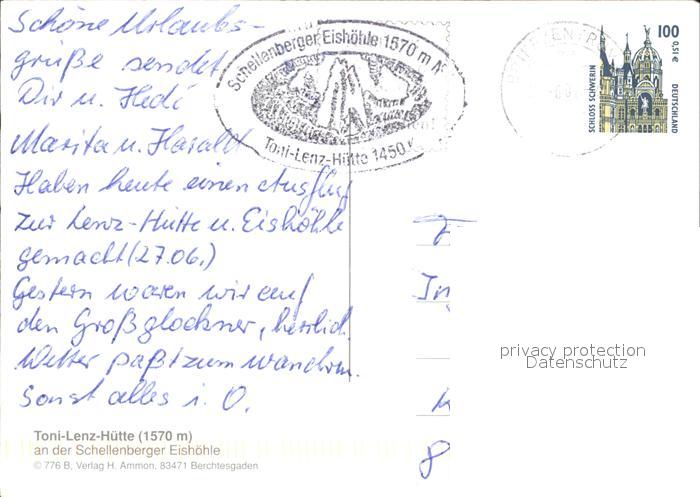 Schöne Urlaubs-
grüße sendet
Dir u. Hedi
Marita u. Harald
Haben heute einen Ausflug
zur Lenz-Hütte u. Eishöhle
gemacht (27.06.)
Gestern waren wir auf
den Großglockner, herrlich.
Wetter paßt zum wandern.
Sonst alles i. O.
Toni-Lenz-Hütte (1570 m)
an der Schellenberger Eishöhle
© 776 B, Verlag H. Ammon, 83471 Berchtesgaden
Schellenberger Eishöhle 1570 m
Toni-Lenz-Hütte 1450
100
0,51 €
SCHLOSS SCHWERIN
DEUTSCHLAND
In
8
privacy protection
Datenschutz